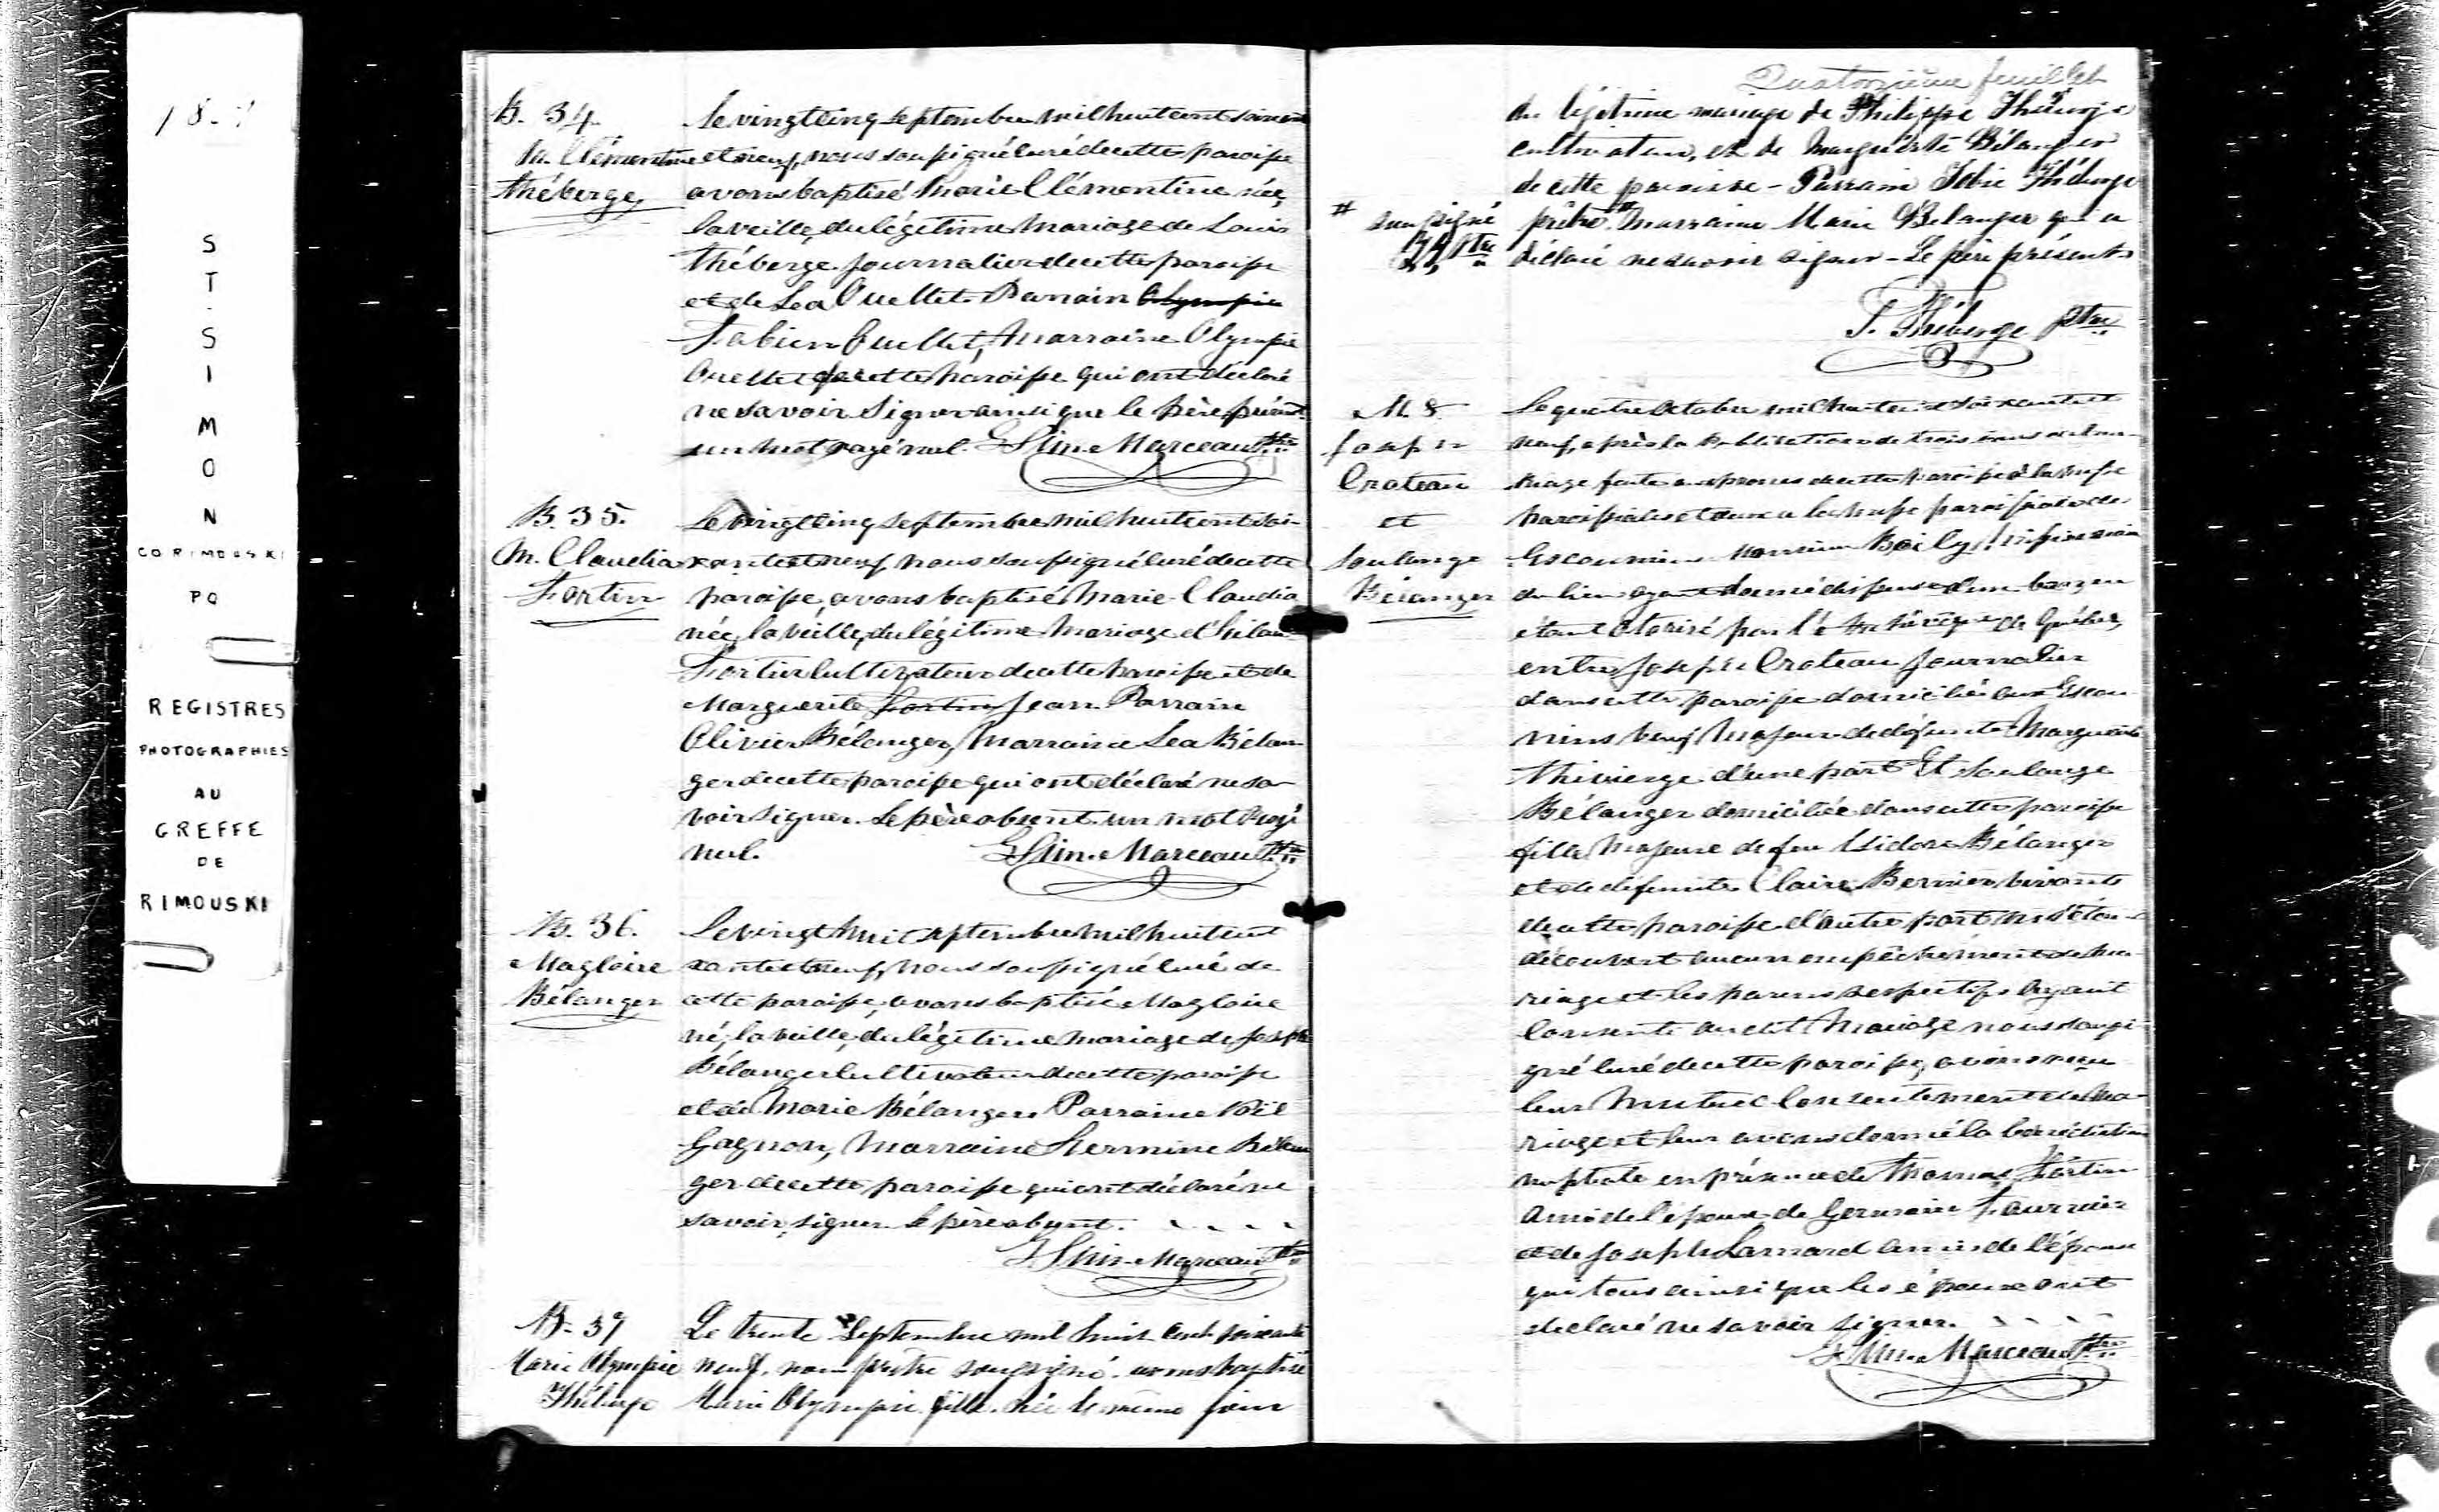 18-
ST. SIMON
CO RIMOUSKI
PQ
REGISTRES
PHOTOGRAPHIES
AU
GREFFE
DE
RIMOUSKI
B. 34.
M. Clémentine
Théberge
Le vingt cinq Septembre mil huit cent soixante
et neuf, nous soussigné curé de cette paroisse
avons baptisé Marie Clémentine née,
la veille, du légitime mariage de Louis
Théberge journalier de cette paroisse
et de Lea Ouellet. Parrain Olympie
Fabien Ouellet, Marraine Olympie
Ouellet de cette paroisse qui ont déclaré
ne savoir signer ainsi que le père présent.
un mot rayé nul. Sim. Marceau Ptre
B. 35.
M. Claudia
Fortin
Le vingt cinq Septembre mil huit cent soi-
xante et neuf, nous soussigné curé de cette
paroisse, avons baptisé Marie Claudia
née, la veille, du légitime mariage d'
Fortin cultivateur de cette paroisse et de
Marguerite Fortin Jean. Parrain
Olivier Bélanger, Marraine Lea Bélan-
ger de cette paroisse qui ont déclaré ne sa-
voir signer. Le père absent. un mot rayé
nul. Sim. Marceau Ptre
B. 36.
Magloire
Bélanger
Le vingt huit septembre mil huit cent
xante et neuf, nous soussigné curé de
cette paroisse, avons baptisé Magloire
né, la veille, du légitime mariage de Joseph
Bélanger cultivateur de cette paroisse
et de Marie Bélanger. Parrain Noël
Gagnon, Marraine Hermine Bélan
ger de cette paroisse qui ont déclaré ne
savoir signer. Le père absent.
Sim. Marceau Ptre
B. 37
Marie Olympie
Théberge
Le trente Septembre mil huit cent soixante
neuf, nous prêtre soussigné avons baptisé
Marie Olympie fille née le même jour
Quatorzième feuillet
du légitime mariage de Philippe Théberge
cultivateur, et de Marguerite Bélanger
de cette paroisse - Parrain Théberge
# soussigné
prêtre # marraine Marie Bélanger qui a
déclaré ne savoir signer - Le père présent
Théberge Ptre
M. 8.
Joseph
Croteau
et
Soulange
Bélanger
Le quatre Octobre mil huit cent soixante et
neuf, après la publication de trois bans de ma-
riage faite au prône de cette paroisse à la messe
paroissiale et à la messe paroissiale des
Escoumins Monsieur Boily missionnaire
du lieu ayant donné dispense d'un ban, en
étant otorisé par l' Archévêque de Québec,
entre Joseph Croteau journalier
dans cette paroisse domicilié aux Escou-
mins veuf majeur de défunte Marguerite
Thivierge d'une part Et Soulange
Bélanger domiciliée dans cette paroisse
fille majeure de feu Isidore Bélanger
et de défunte Claire Bernier, vivants
de cette paroisse d'autre part, ne s'étant
découvert aucun empêchement de ma-
riage et les parens respectifs ayant
consenti au dit Mariage nous soussi-
gné curé de cette paroisse, avons reçu
leur mutuel consentement de ma-
riage et leur avons donné la bénédiction
nuptiale en présence de Thomas Fortin
ami de l'époux de Germain Fournier
et de Joseph amis de l'épouse
qui tous ainsi que les époux ont
déclaré ne savoir signer.
Sim. Marceau Ptre